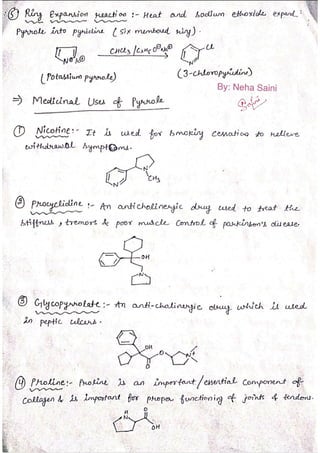 ⑤ Ring Expansion reaction :- Heat and Sodium ethoxide expand
Pyrrole into pyridine (six membered ring).
CHCl3 / C2H5O⊖Na⊕
Cl
N⊖K⊕
N
(Potassium pyrrole)
(3-chloropyridine)
By: Neha Saini
Saini
⇒ Medicinal Uses of Pyrrole
① Nicotine:- It is used for smoking cessation to relieve
withdrawal symptoms.
N
CH3
N
② Procyclidine :- An anticholinergic drug used to treat the
stiffness, tremors & poor muscle control of parkinson's disease.
OH
N
③ Glycopyrrolate :- An anti-cholinergic drug which is used
in peptic ulcers.
OH
O
N+
O
④ Proline:- Proline is an important / essential component of
collagen & is important for proper functioning of joints & tendons.
H
N
O
OH